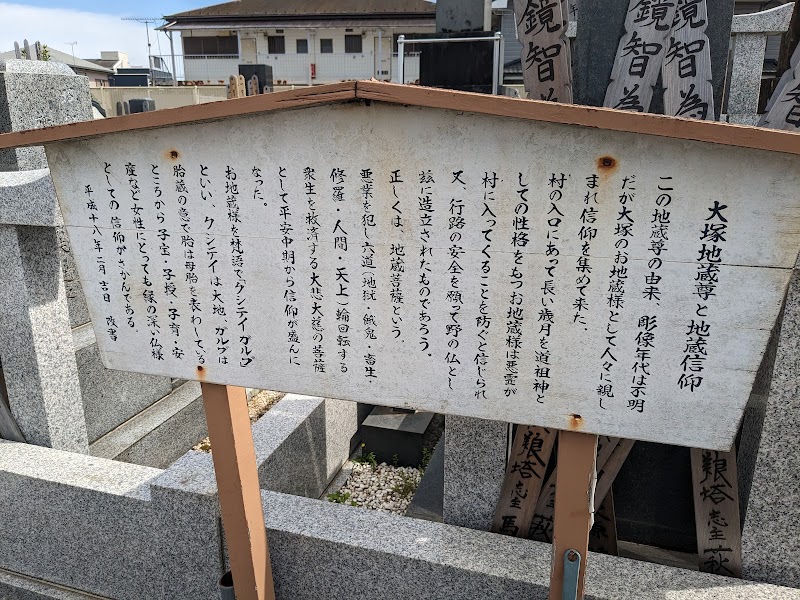 大塚地蔵尊と地蔵信仰
この地蔵尊の由来、彫像年代は不明
だが大塚のお地蔵様として人々に親し
まれ信仰を集めて来た。
村の入口にあって長い歳月を道祖神と
しての性格をもつお地蔵様は悪霊が
村に入ってくることを防ぐと信じられ
又、行路の安全を願って野の仏とし
玆に造立されたものであろう。
正しくは、地蔵菩薩という。
悪業を犯し六道(地獄・餓鬼・畜生・
修羅・人間・天上)輪回転する
衆生を救済する大悲大慈の菩薩
として平安中期から信仰が盛んに
なった。
お地蔵様を梵語で、クシテイ ガルブ
といい、クシテイは大地、ガルブは
胎蔵の意で胎は母胎を表わしている
ところから子宝・子授・子育・安
産など女性にとっても縁の深い仏様
としての信仰がさかんである。
平成十八年二月吉日 改書
鏡智
鏡智為
鏡智為
智為
塔志主